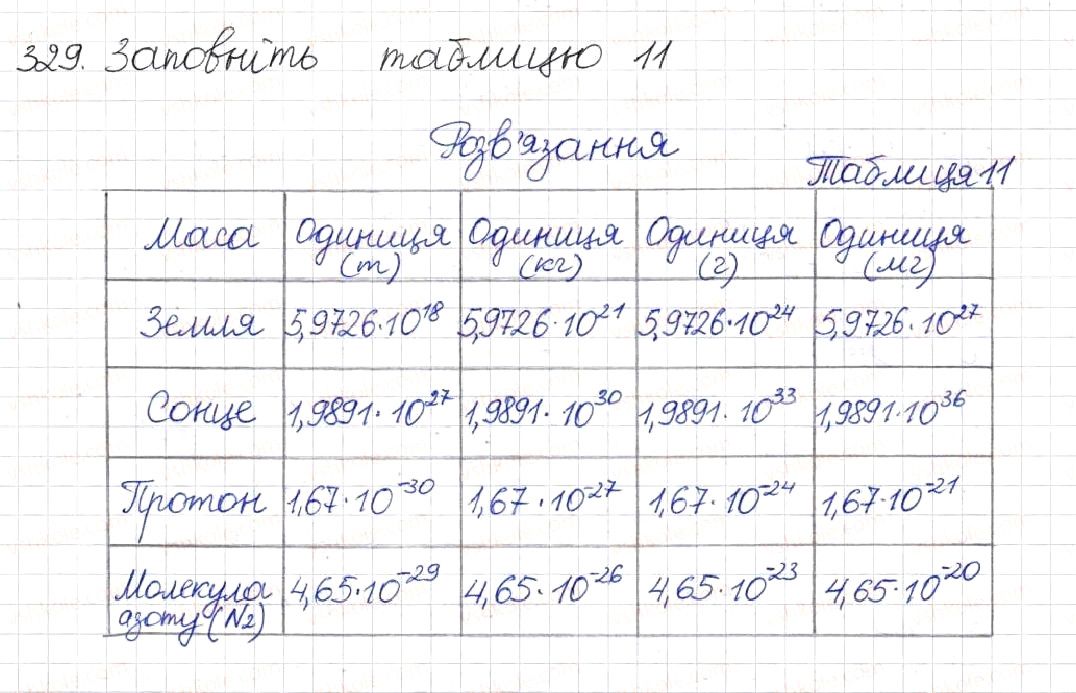 329. Заповніть таблицю 11
Розв'язання
Таблиця 11
Маса Одиниця (т) Одиниця (кг) Одиниця (г) Одиниця (мг)
Земля 5,9726·10¹⁸ 5,9726·10²¹ 5,9726·10²⁴ 5,9726·10²⁷
Сонце 1,9891·10²⁷ 1,9891·10³⁰ 1,9891·10³³ 1,9891·10³⁶
Протон 1,67·10⁻³⁰ 1,67·10⁻²⁷ 1,67·10⁻²⁴ 1,67·10⁻²¹
Молекула азоту (N₂) 4,65·10⁻²⁹ 4,65·10⁻²⁶ 4,65·10⁻²³ 4,65·10⁻²⁰